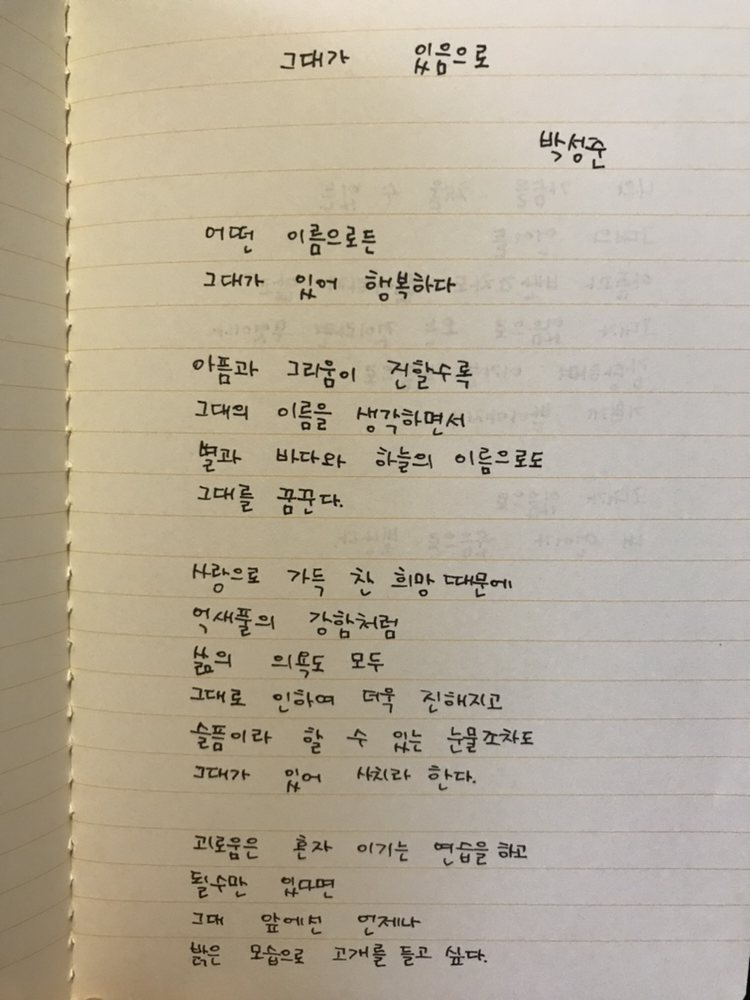 그대가 있음으로
박성준
어떤 이름으로든
그대가 있어 행복하다
아픔과 그리움이 진할수록
그대의 이름을 생각하면서
별과 바다와 하늘의 이름으로도
그대를 꿈꾼다.
사랑으로 가득 찬 희망 때문에
억새풀의 강함처럼
삶의 의욕도 모두
그대로 인하여 더욱 진해지고
슬픔이라 할 수 있는 눈물조차도
그대가 있어 사치라 한다.
괴로움은 혼자 이기는 연습을 하고
될수만 있다면
그대 앞에선 언제나
밝은 모습으로 고개를 들고 싶다.